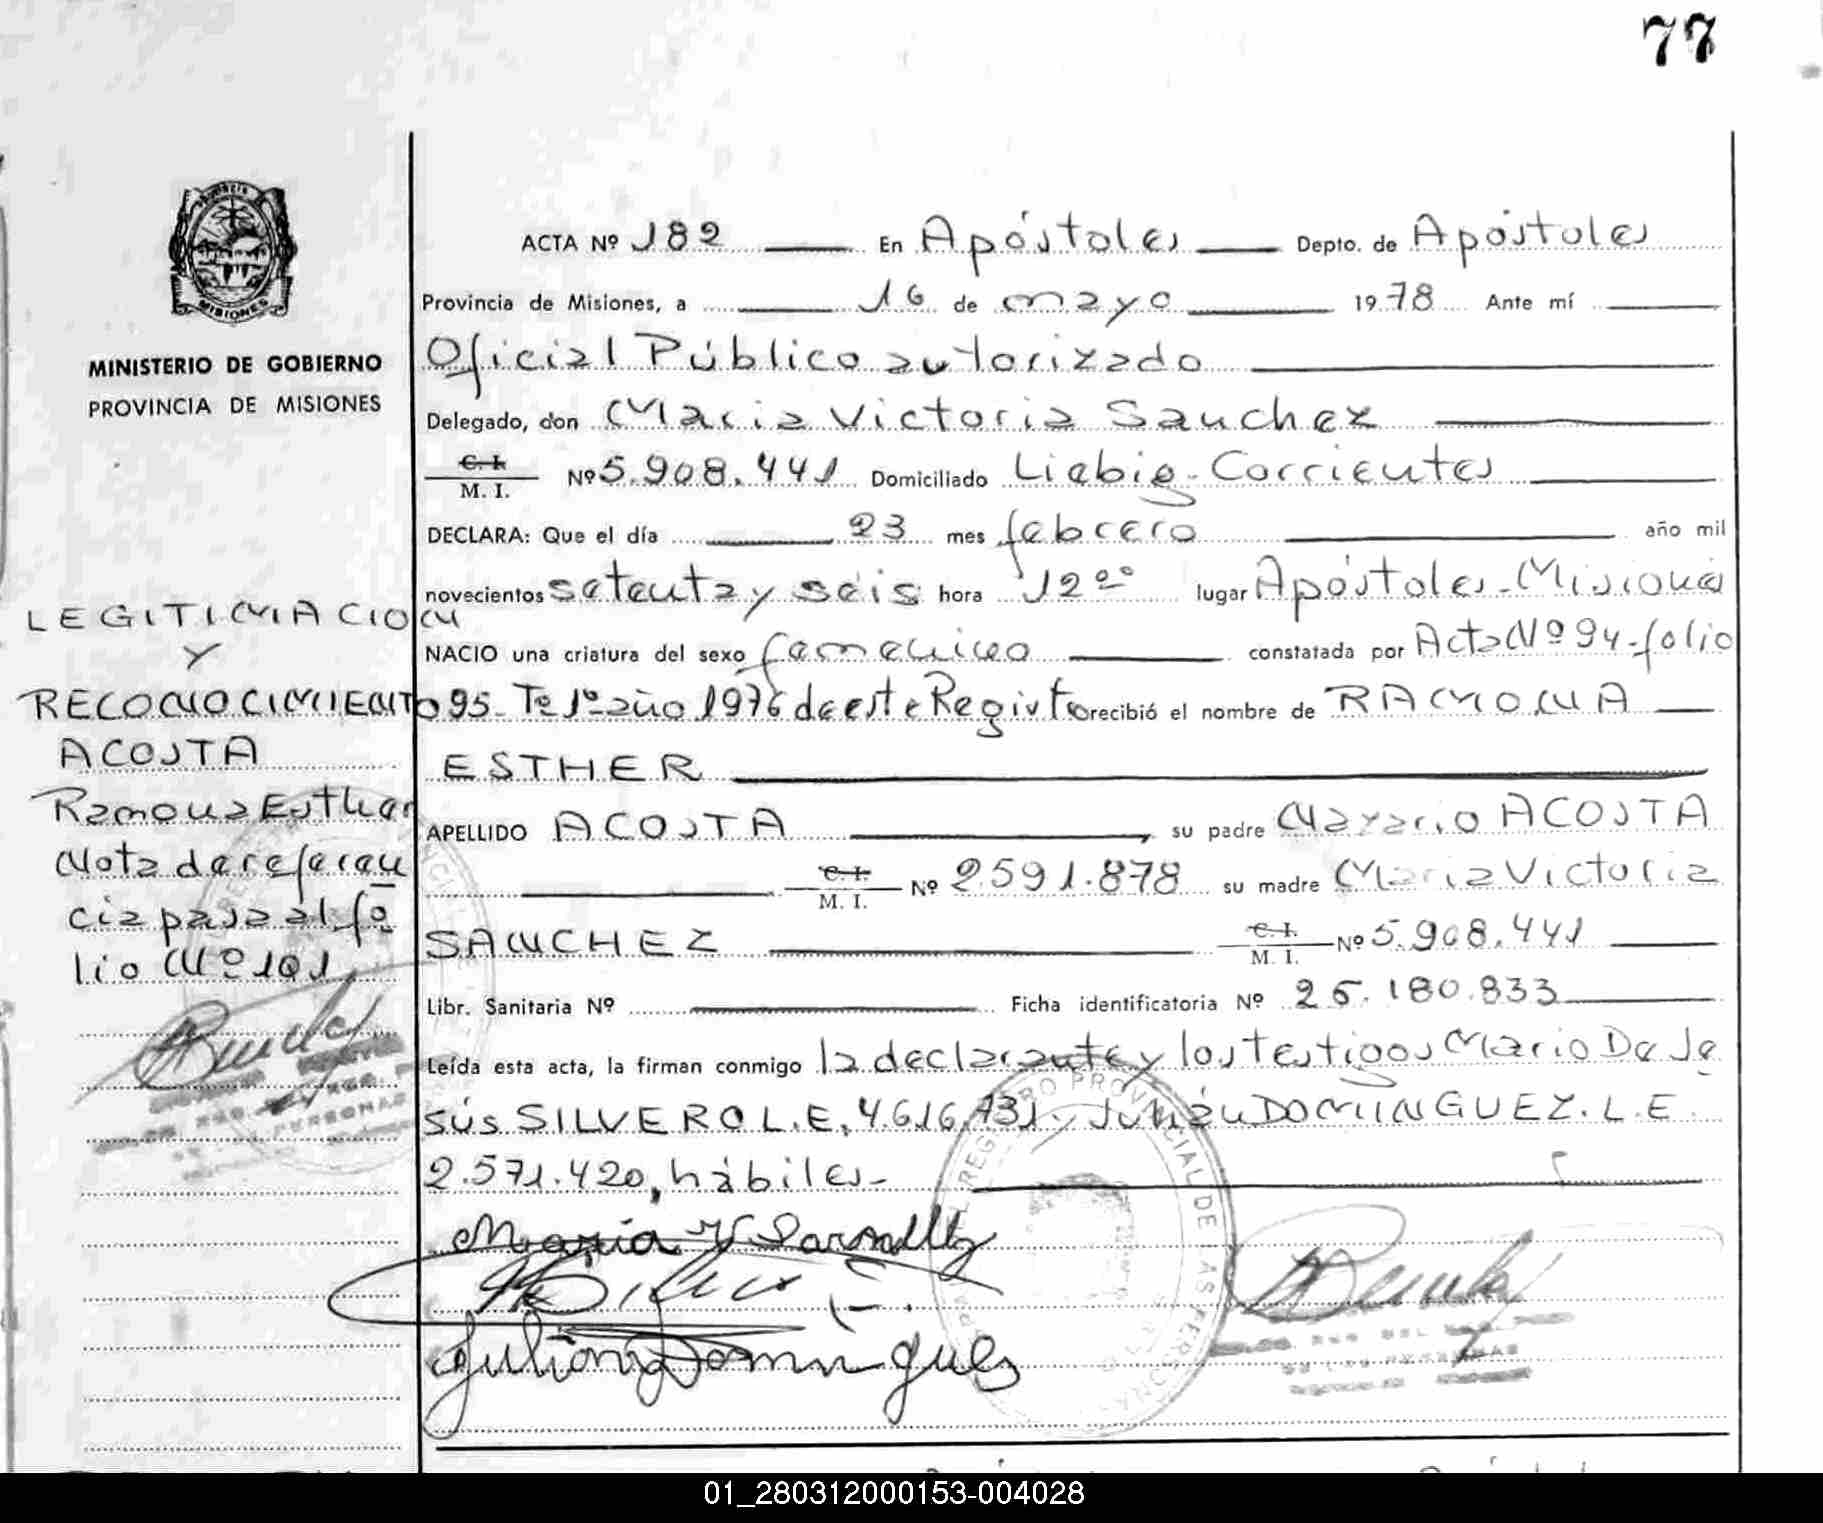 77
MINISTERIO DE GOBIERNO
PROVINCIA DE MISIONES
LEGITIMACION
Y
RECONOCIMIENTO
ACOSTA
Ramona Esther
Nota de referen
cia pasa al fo
lio Nº 101
ACTA Nº 182 En Apóstoles Depto. de Apóstoles
Provincia de Misiones, a 16 de mayo 1978 Ante mí
Oficial Público autorizado
Delegado, don Maria Victoria Sanchez
C. I.
M. I. Nº 5.908.441 Domiciliado Liebig-Corrientes
DECLARA: Que el día 23 mes febrero año mil
novecientos setenta y seis hora 12ºº lugar Apóstoles-Misiones
NACIO una criatura del sexo femenino constatada por Acta Nº 94-folio
95-Tº 1º año 1976 de este Registro recibió el nombre de RAMONA
ESTHER
APELLIDO ACOSTA, su padre Nazario ACOSTA
C. I.
M. I. Nº 2591.878 su madre Maria Victoria
SANCHEZ C. I.
M. I. Nº 5.908.441
Libr. Sanitaria Nº Ficha identificatoria Nº 25.180.833
Leída esta acta, la firman conmigo la declarante y los testigos Mario De Je
sús SILVERO L.E. 4.616.731 y Julián DOMINGUEZ. L.E.
2.571.420, hábiles-
REGISTRO PROVINCIAL DE LAS PERSONAS
Maria V
Julian Dominguez
01_280312000153-004028